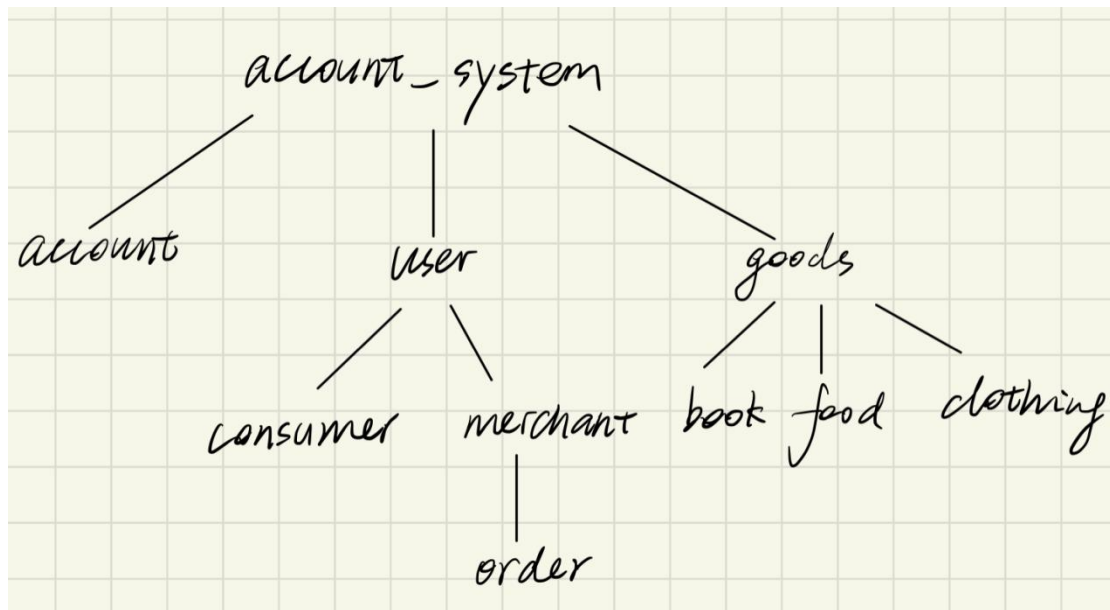 account_system
account user goods
consumer merchant book food clothing
order